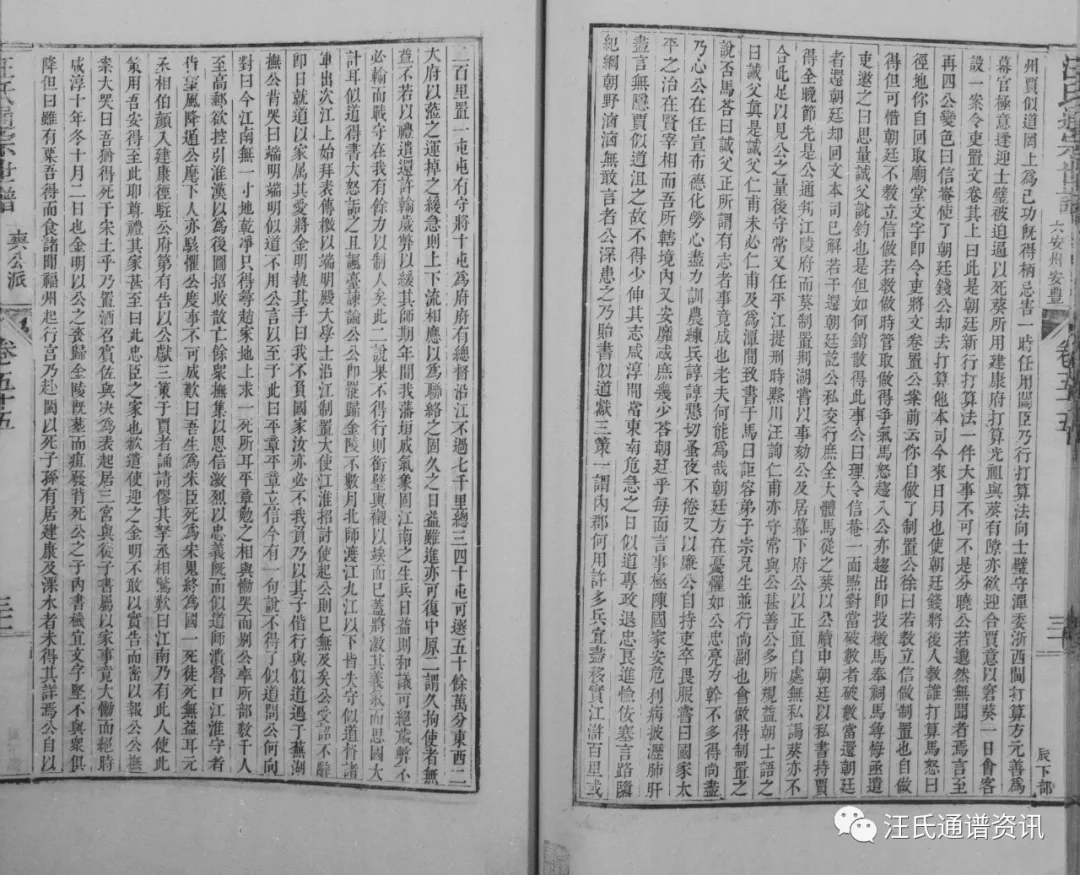 汪氏通宗世譜 六安州安豐 卷五十五
辰下部
州賈似道罔上為己功旣得柄忌害一時任用閫臣乃行打算法向士璧守潭委浙西閫打算方元善為
幕官極意逢迎士璧被迫逼以死葵所用建康府打算光祖與葵有隙亦欲迎合賈意以窘葵一日會客
設一案令吏置文卷其上曰此是朝廷新行打算法一件大事不可不是分曉公若邈然無聞者焉言至
再四公變色曰信菴使了朝廷錢公却去打算他本司今來日月也使朝廷錢將後人敎誰打算馬怒曰
徑地你自回取廟堂文字即令吏將文卷置公案前云你自做了制置公徐曰若敎立信做制置也自做
得但可惜朝廷不敎立信做若敎做時管取做得爭氣馬怒趨入公亦趨出即投檄馬奉祠馬尋悔亟遣
吏邀之曰思量誠父說鈞也是但如何銷散得此事公曰理令信菴一面㸃對當破數者破數當還朝廷
者還朝廷却回文本司已解若干還朝廷訖公私交行庶全大體馬從之葵以公牘申朝廷以私書持賈
得全晚節先是公通判江陵府而葵制置荆湖嘗以事劾公及居幕下府公以正直自處無私謁葵亦不
合此足以見公之量後守常又任平江提刑時黟川汪詢仁甫亦守常與公甚善公多所規益朝士語之
曰誠父眞是誠父仁甫未必仁甫及為潭閫致書于馬曰詎容弟子宗兄生並行尚副也會做得制置之
說否馬荅曰誠父正所謂有志者事竟成也老夫何能為哉朝廷方在憂懼如公忠亮方幹不多得尚盡
乃心公在任宣布德化勞心盡力訓農練兵諄諄懇切蚤夜不倦又以廉公自持吏卒畏服嘗曰國家太
平之治在賢宰相而吾所轄境內乂安靡或庶幾少荅朝廷乎每面言事極陳國家安危利病披瀝肺肝
盡言無隱賈似道沮之故不得少伸其志咸淳間當東南危急之日似道專政退忠良進憸佞塞言路隳
紀綱朝野滷滷無敢言者公深患之乃貽書似道獻三策一謂內郡何用許多兵宜盡移實江滸百里或
二百里置一屯屯有守將十屯為府府有總督沿江不過七千里總三四十屯可選五十餘萬分東西二
大府以蒞之運掉之緩急則上下流相應以為聯絡之固久之日益雖進亦可復中原二謂久拘使者無
益不若以禮遣還許輸歲幣以緩其師期年間我藩垣成氣象固江南之生兵日益則和議可絕歲幣不
必輸而戰守在我有餘力以制人矣此二說果不得行則銜璧輿櫬以埃而巳蓋將激其義氣而思國大
計耳似道得書大怒詬之且諷臺諫論公公卽罷歸金陵不數月北師渡江九江以下皆失守似道督諸
軍出次江上始拜表傳檄以端明殿大學士沿江制置大使江淮招討使起公則巳無及矣公受詔不辭
即日就道以家属其愛將金明執其手曰我不負國家汝亦必不我負乃以其子偕行與似道遇于蕪湖
撫公背哭曰端明端明似道不用公言以至于此公曰平章平章立信今有一句說不得了似道問公何向
對曰今江南無一寸地乾凈只得尋趙家地上求一死所耳平章勉之相與慟哭而别公率所部數千人
至高郵欲控引淮漢以為後圖招收散亡餘衆撫集以恩信激烈以忠義旣而似道師潰魯口江淮守者
皆望風降遁公麾下人亦駭懼公度事不可成歎曰吾生為宋臣死為宋鬼終為國一死徒死無益耳元
丞相伯顏入建康徑駐公府第有告以公獻三策于賈者誦請僇其孥丞相驚歎曰江南乃有此人使此
策用吾安得至此耶尊禮其家甚至曰此忠臣之家也欲遣使迎之金明不敢以實告而密以報公公撫
案大哭曰吾猶得死于宋土乎乃置酒召賓佐與决為表起居三宮與從子書屬以家事竟大慟而絕時
咸淳十年冬十月二日也金明以公之喪歸金陵旣墓而疽發背死公之子內書機宜文字堅不與衆俱
降但曰雖有粟吾得而食諸聞福州起行宫乃赴閩以死子孫有居建康及溧水者未得其詳焉公自以
汪氏通宗世譜 爽公派 卷五十五
汪氏通谱资讯